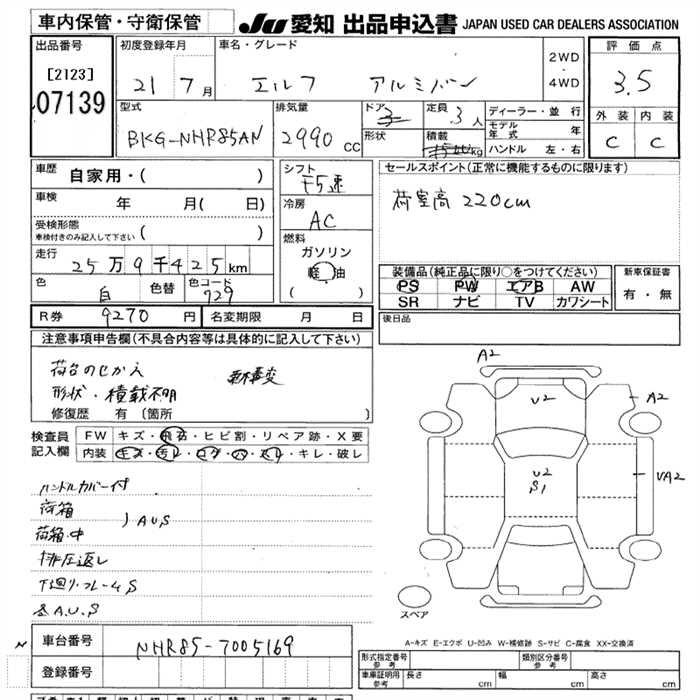 車内保管・守衛保管
JU 愛知 出品申込書 JAPAN USED CAR DEALERS ASSOCIATION
出品番号 初度登録年月 車名・グレード 評価点
[2123] 21 7月 エルフ アルミバン 2WD ・ 4WD 3.5
07139
型式 排気量 ドア 定員 3人 ディーラー・並行 外装 内装
BKG-NHR85AN 2990 cc 3 形状 積載 kg モデル年式 年 C C
ハンドル 左・右
車歴 自家用・( ) シフト F5速 セールスポイント(正常に機能するものに限ります)
車検 年 月( 日) 冷房 AC 荷室高 220cm
受検形態 車検付きのみ記入して下さい ( ) 燃料
ガソリン
走行 25万9千425km 軽油
( )
色 白 色替 色コード 729
装備品(純正品に限り○をつけてください) 新車保証書
PS PW エアB AW 有・無
SR ナビ TV カワシート
R券 9270円 名変期限 月 日 後日品
注意事項申告欄(不具合内容等は具体的に記入して下さい)
荷台のせかえ
形状・積載不明
修復歴 有 (箇所 )
A2
U2
A2
U2
S1
VA2
スペア
検査員記入欄 FW キズ・飛石・ヒビ割・リペア跡・X要
内装 キズ・汚レ・コゲ・穴・スレ・キレ・破レ
ハンドルカバー付
荷箱
荷箱中 ) AUS
排圧返し
下廻り・フレームS
A.U.S
A-キズ E-エクボ U-凹み W-補修跡 S-サビ C-腐食 XX-交換済
車台番号 NHR85-7005169
登録番号
型式指定番号 参考 類別区分番号 参考
車庫証明用 参考 長さ cm 幅 cm 高さ cm